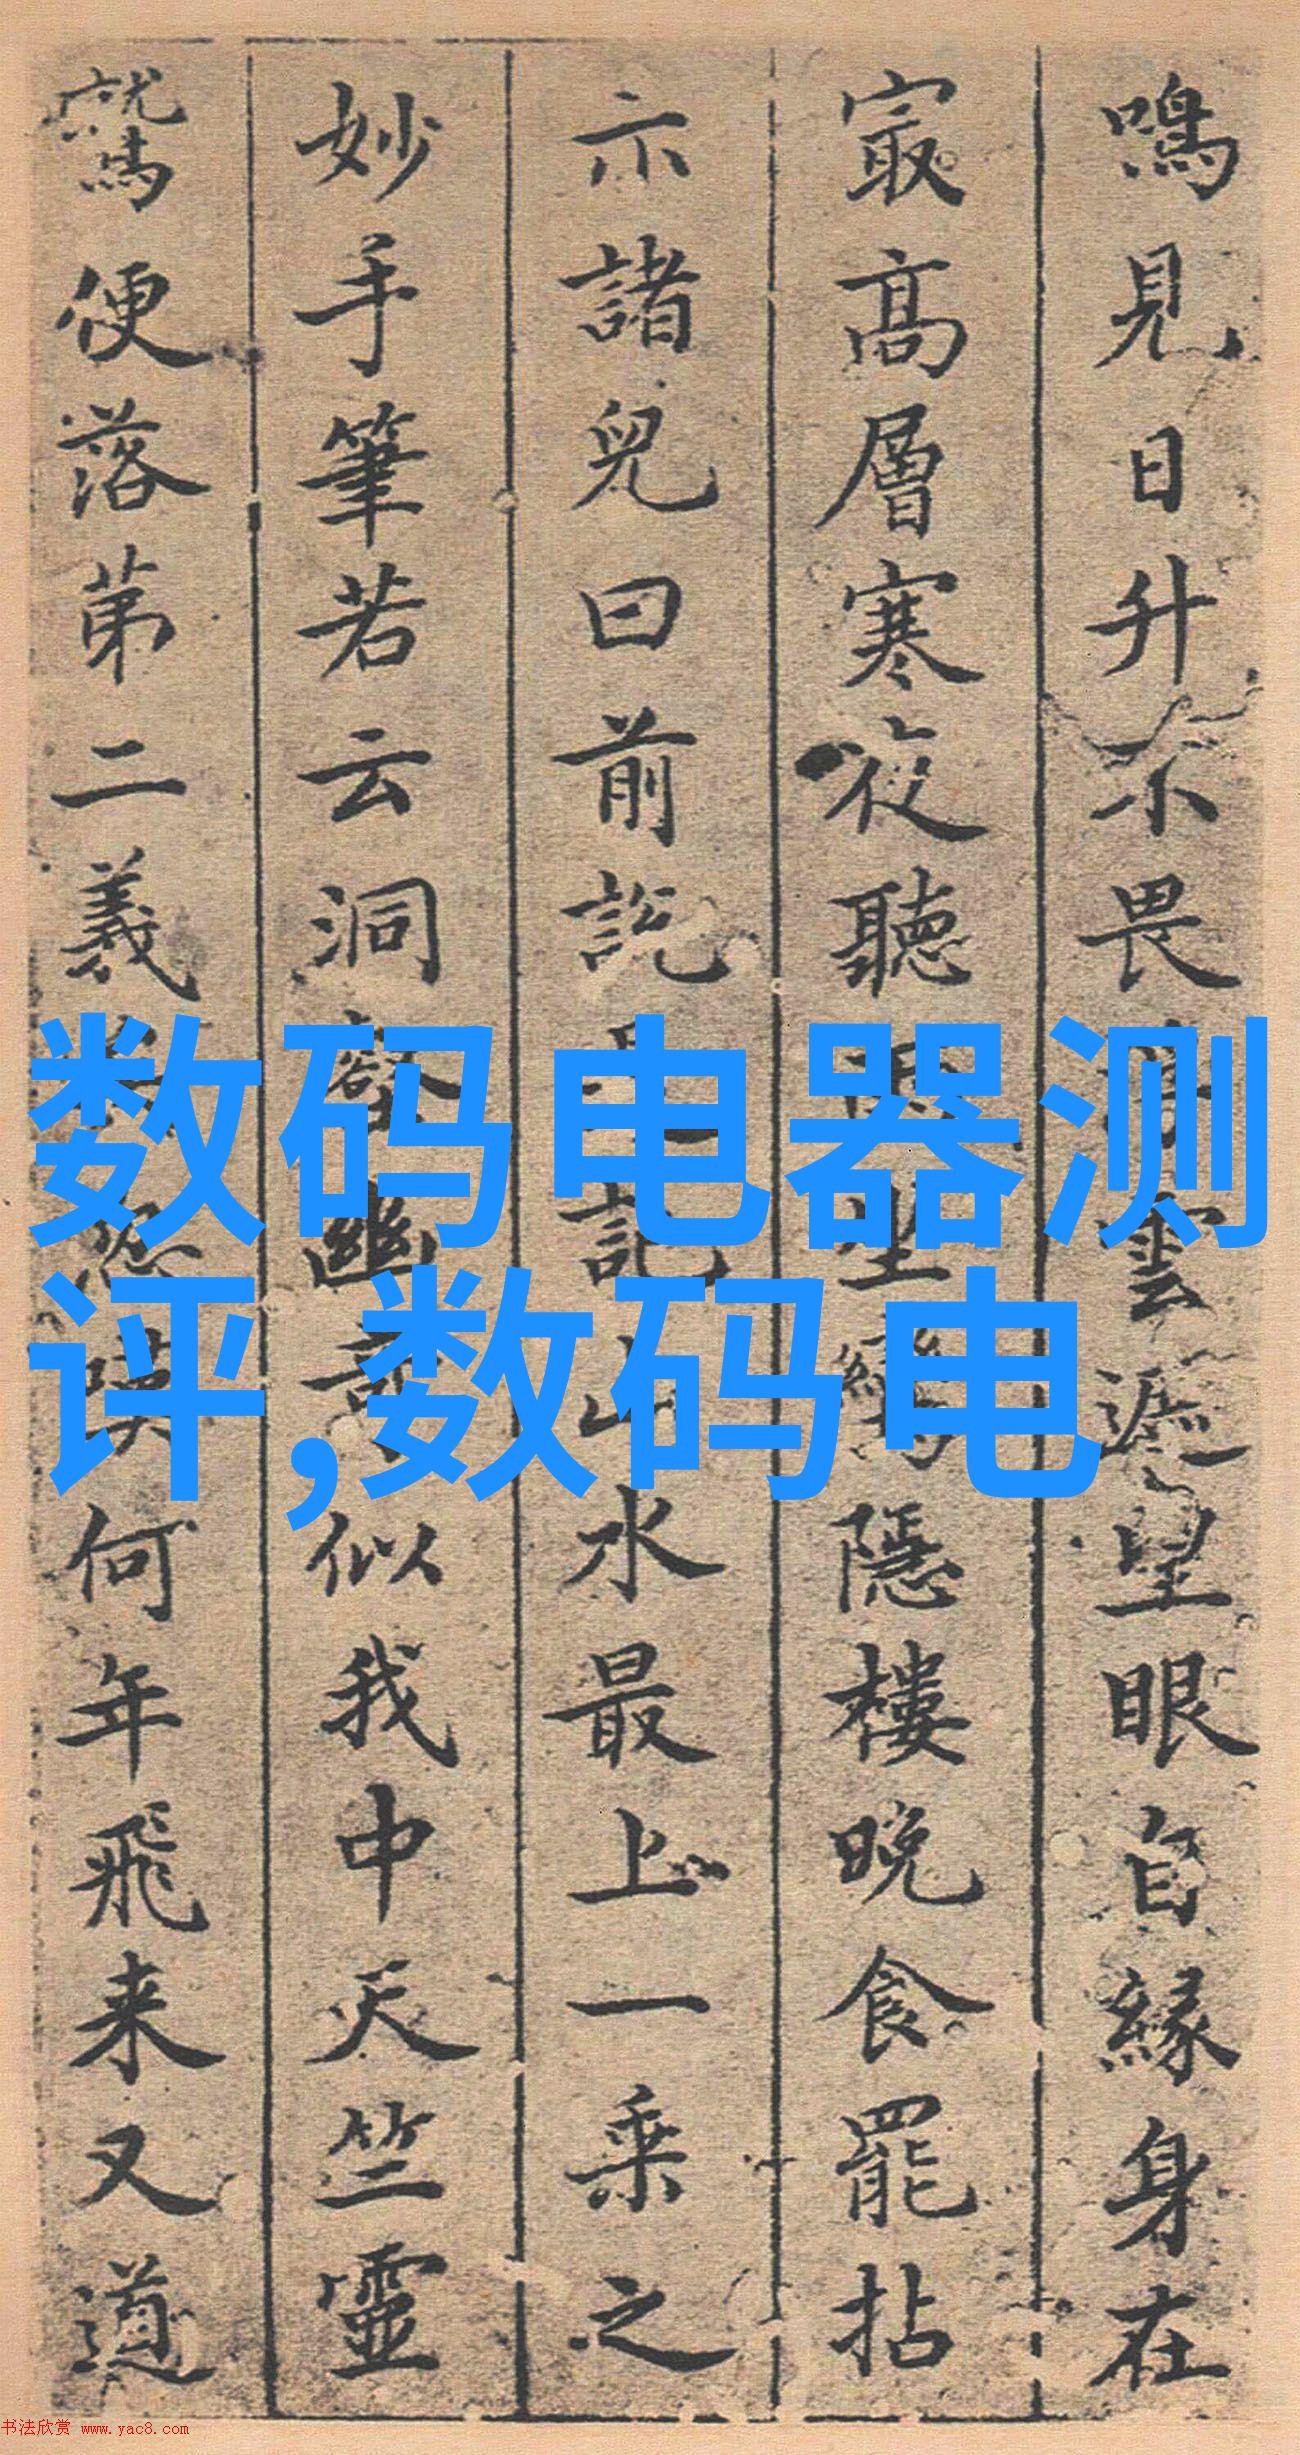 鳴見日升不畏雲遮望眼自緣身在
最高層寒夜聽雨坐隱樓晚食罷拈
示諸兒曰前說記山水最上一乘之
妙手筆若云洞幽似我中天竺靈
鷲便落第二義何年飛来又道
数码电器测
评,数码电
书法欣赏 www.yac8.com